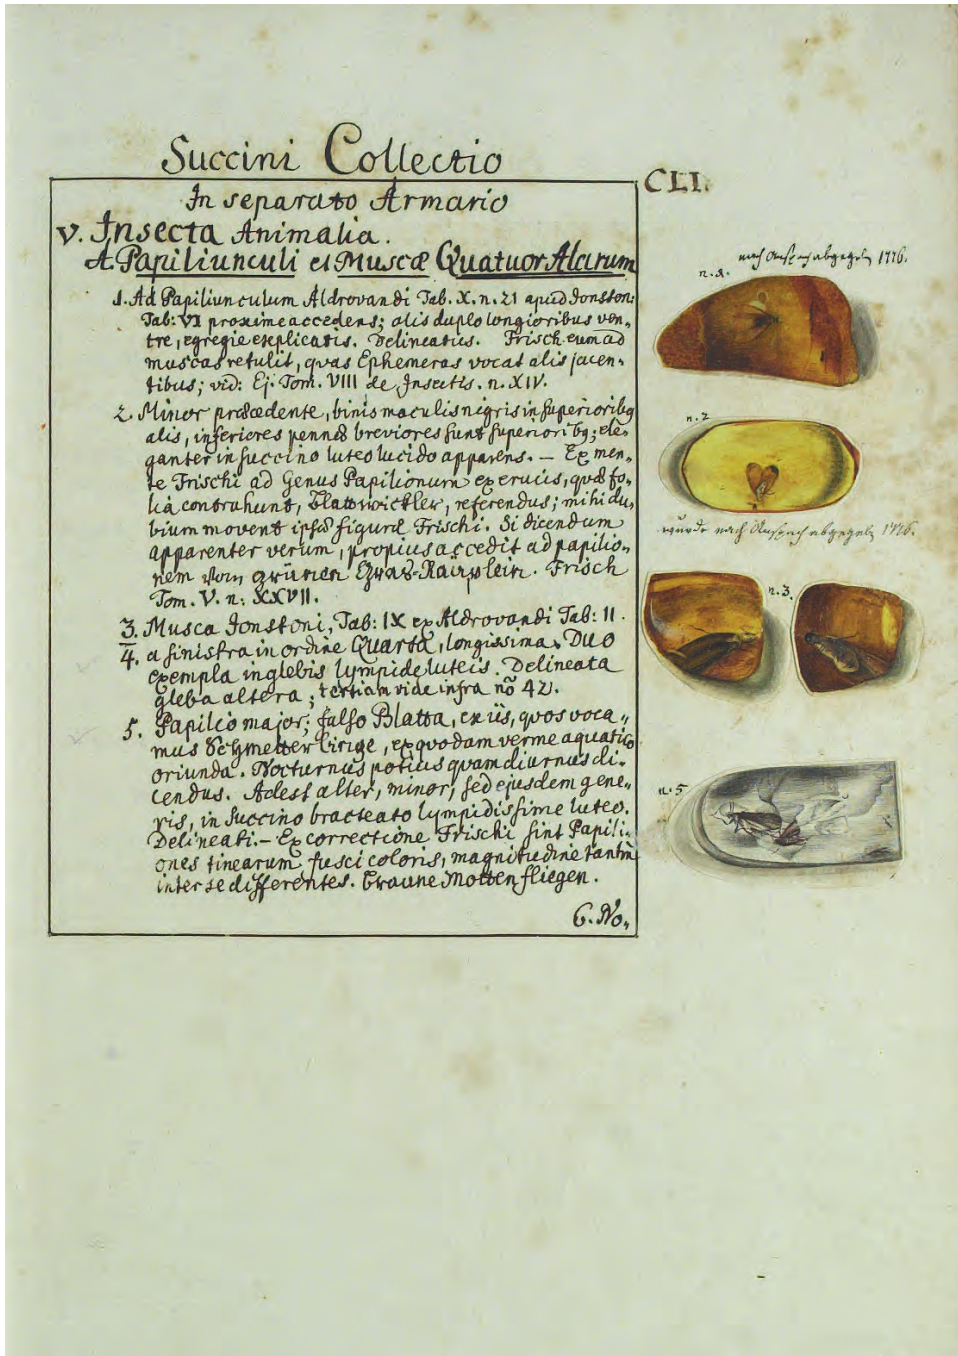 Succini Collectio
CLI.
In separato Armario
V. Insecta Animalia.
A. Papiliunculi et Muscæ Quatuor Alarum
1. Ad Papiliunculum Aldrovandi Tab. X. n. 21 apud Jonston:
Tab: VI proxime accedens; alis duplo longioribus ven-
tre, egregie explicatis. Delineatus. Frisch eum ad
muscas retulit, quas Ephemeras vocat alis jacen-
tibus; vid: Ej. Tom. VIII de Insectis. n. XIV.
2. Minor præcedente, binis maculis nigris in superioribq
alis, inferiores pennæ breviores sunt superioribq; ele-
ganter in succino luteo lucido apparens. – Ex men-
te Frischi ad Genus Papilionum ex erucis, quæ fo-
lia contrahunt, Blattwickler, referendus; mihi du-
bium movent ipsæ figuræ Frischi. Si dicendum
apparenter verum, propius accedit ad papilio-
nem vom grünen Graß-Räuplein. Frisch
Tom. V. n: XXVII.
3. Musca Jonstoni, Tab: IX ex Aldrovandi Tab: II.
4. a sinistra in ordine Quarta, longissima. Duo
exempla in glebis lympide luteis. Delineata
gleba altera; tertiam vide infra nō 42.
5. Papilio major; falso Blatta, ex iis, quos voca-
mus Schmetterlinge, ex quodam verme aquatico
oriunda. Nocturnus potius quam diurnus di-
cendus. Adest alter, minor, sed ejusdem gene-
ris, in succino bracteato lympidissime luteo.
Delineati. – Ex correctione Frischi sint Papili-
ones tinearum fusci coloris, magnitudine tantum
inter se differentes. Braune Mottenfliegen.
6. No-
nach Anspach abgegeben 1776.
n. 1.
n. 2
wurde nach Anspach abgegeben 1776.
n. 3.
n. 5